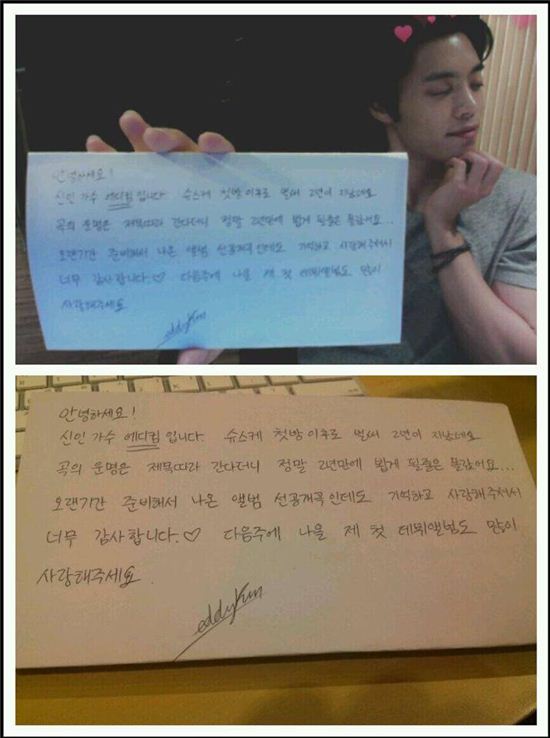 안녕하세요!
신인 가수 에디킴 입니다. 슈스케 첫방 이후로 벌써 2년이 지났네요
곡의 운명은 제목따라 간다더니 정말 2년만에 뵙게 될줄은 몰랐어요...
오랜기간 준비해서 나온 앨범 선공개곡인데도 기억하고 사랑해주셔서
너무 감사합니다.♡ 다음주에 나올 제 첫 데뷔앨범도 많이
사랑해주세요
eddykim
안녕하세요!
신인 가수 에디킴 입니다. 슈스케 첫방 이후로 벌써 2년이 지났네요
곡의 운명은 제목따라 간다더니 정말 2년만에 뵙게 될줄은 몰랐어요...
오랜기간 준비해서 나온 앨범 선공개곡인데도 기억하고 사랑해주셔서
너무 감사합니다.♡ 다음주에 나올 제 첫 데뷔앨범도 많이
사랑해주세요.
eddykim